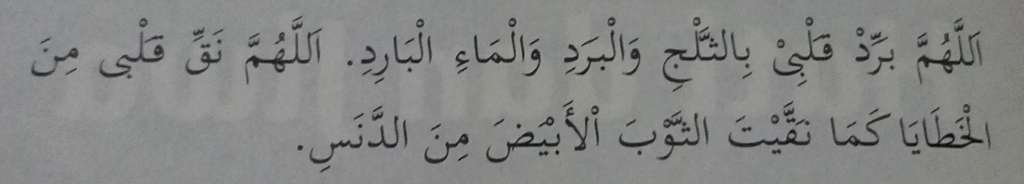 اَللَّهُمَّ بَرِّدْ قَلْبِيْ بِالثَّلْجِ وَالْبَرَدِ وَالْمَاءِ الْبَارِدِ. اَللَّهُمَّ نَقِّ قَلْبِى مِنَ
الْخَطَايَا كَمَا نَقَّيْتَ الثَّوْبَ اْلأَبْيَضَ مِنَ الدَّنَسِ.